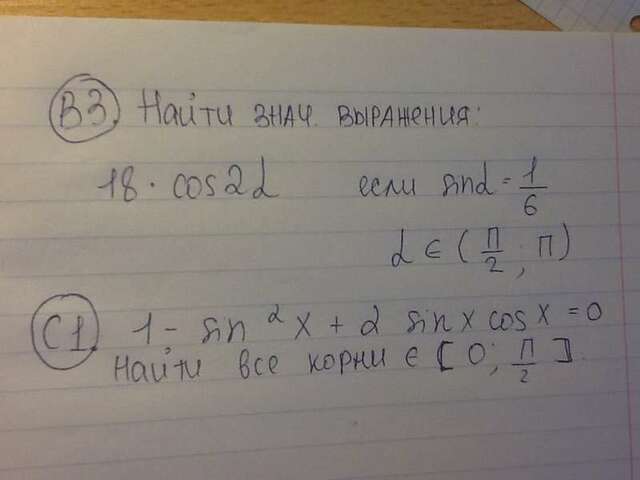 В3. Найти знач. выражения:
18 · cos2α если sinα = 1/6
α ∈ (П/2; П)
С1. 1 - sin²x + 2 sin x cos x = 0
Найти все корни ∈ [0; П/2].